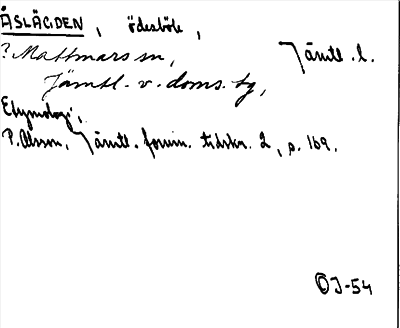 ÅSLÄGDEN, ödesböle,
? Mattmars sn, Jämtl. l.
Jämtl. v. doms. tg,
Etymologi,
P. Olsson, Jämtl. fornm. tidskr. 2, s. 169.
OJ-54